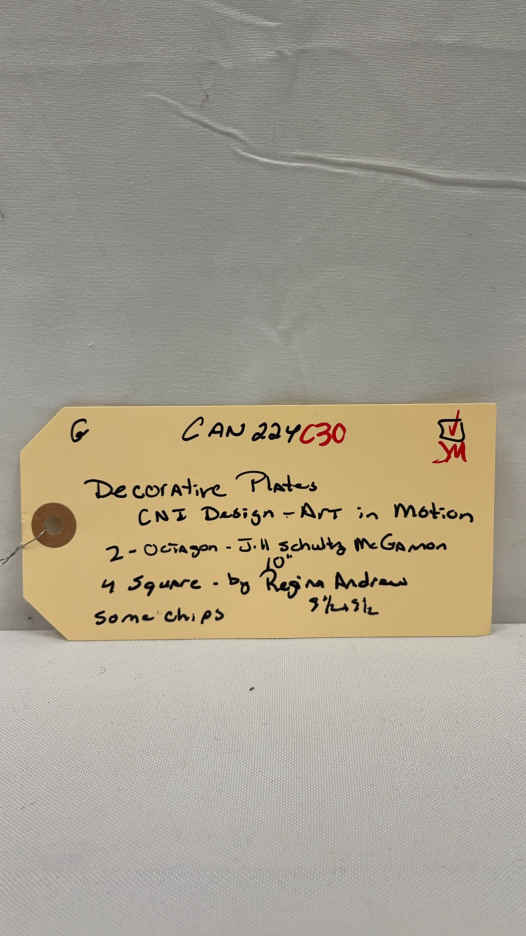 G CAN 224 C30 JM
Decorative Plates
CNI Design - Art in Motion
2 - Octagon - Jill Schultz McGannon
10"
4 Square - by Regina Andrew
some chips